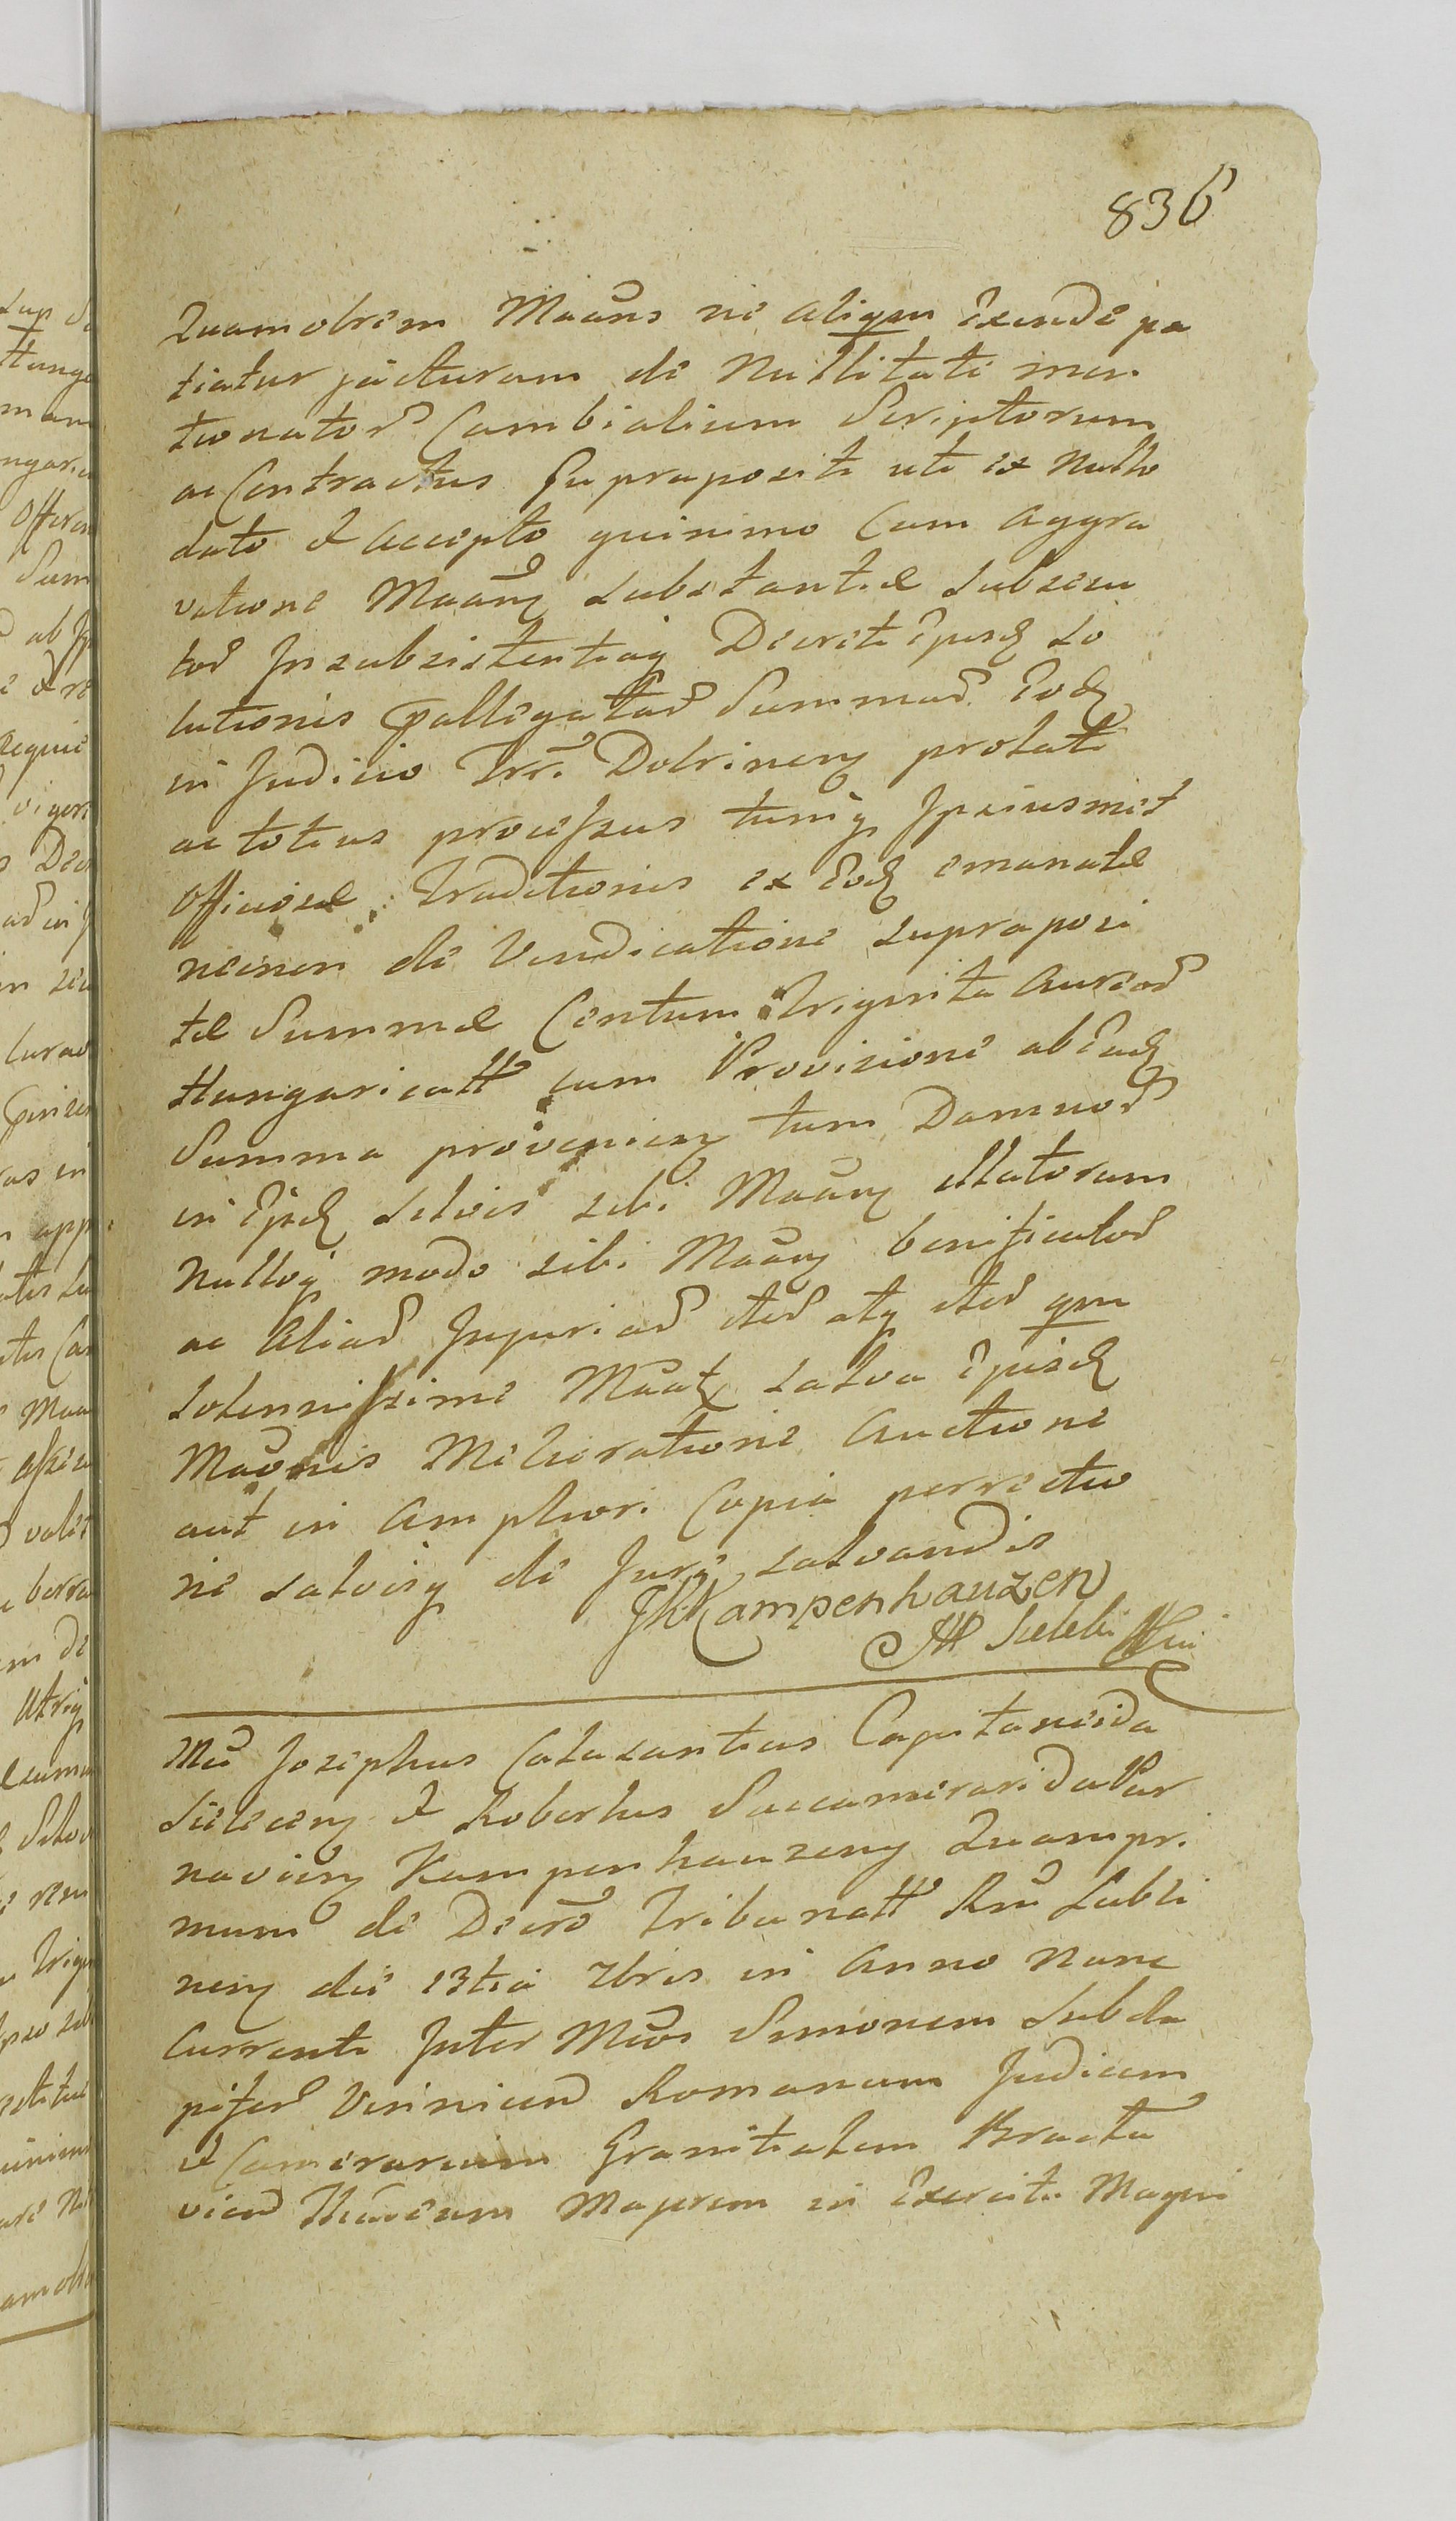 836
Quamobrem Maans ne aliqm exinde pa
tiatur jacturam de Nullitate men
tionator Cambialium Scriptorum
ac Contractus supraposite uti ex Nullo
dato & accepto quinimo Cum aggra
vatione Maang substantiæ subsecu
tor Insubsistentiaq Decreti Ejusd so
lutionis pallegatar Summar Eod
in Judicio Trri Dobrineng prolati
ac totius processus tumq Ipsiusmet
Officiosæ Traditionis ex Eod emanatæ
necnon de Vendicatione suprapozi
tæ Summæ Centum Triginta Aureor
Hungaricall cum Provisione ab Ead
Summa provenieng tum Damnor
in Ejsd litois sibi Maang illatorum
Nulloq modo sibi Maang bonificator
ac aliar Injuriar iter atq iter qm
solennissime Maat salva Ejusd
Maonis Melioratione Auctione
aut in Ampliori Copia porrectio
ne salvisq de Jure salvandis
JKKampenhauzen
Mcu Josephus Calasantius Capitaneida
Sieleceng & Robertus Succamerarida Par
navieng Kampenhauzeng Quampri
mum de Decro Tribunall Rni Lubli
neng die 13tia 7bris in Anno Nunc
Currenti Inter Mcos Simonem Subda
pifer Vinnicen Romanum Judicem
& Camerarium Granitialem Bracla
vien Majorem in Exercitu Magni